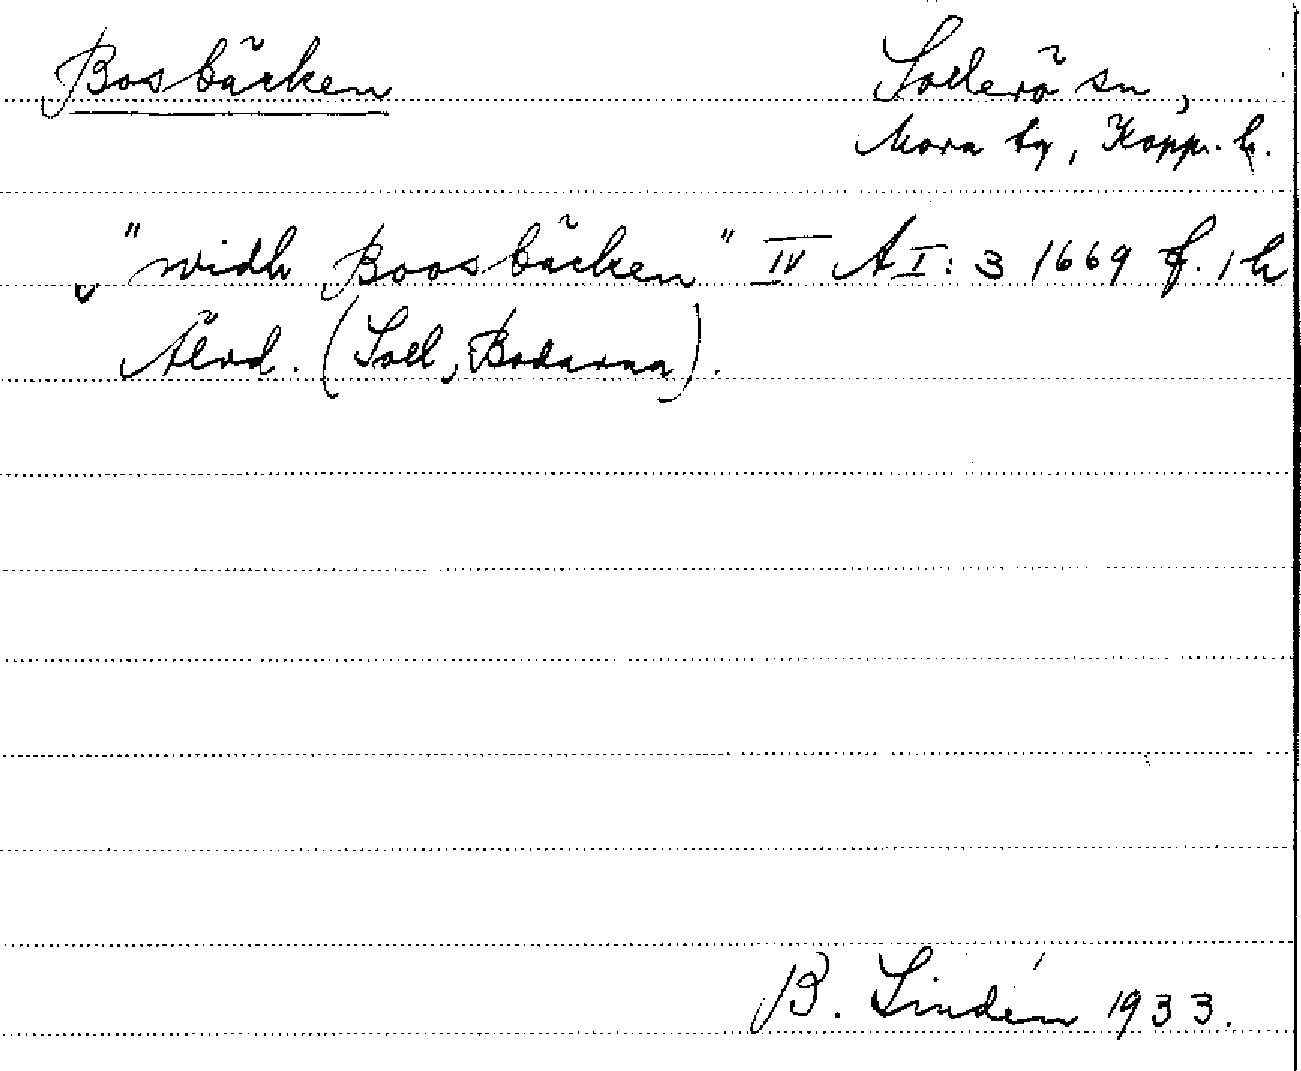 Bosbäcken
Sollerö sn,
Mora tg, Kopp. l.
"widh Boosbäcken" IV A I: 3 1669 f. 1 h
Älvd. (Soll, Bodarna).
B. Lindén 1933.